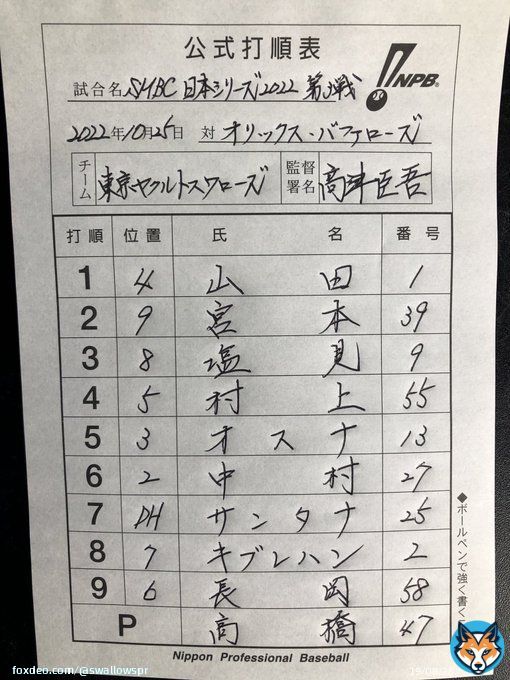 公式打順表
NPB
試合名 SMBC 日本シリーズ2022 第3戦
2022年10月25日 対 オリックス・バファローズ
チーム 東京ヤクルトスワローズ 監督署名 高津臣吾
打順 位置 氏名 番号
1 4 山田 1
2 9 宮本 39
3 8 塩見 9
4 5 村上 55
5 3 オスナ 13
6 2 中村 27
7 DH サンタナ 25
8 7 キブレハン 2
9 6 長岡 58
P 高橋 47
◆ボールペンで強く書く
Nippon Professional Baseball
foxdeo.com/@swallowspr